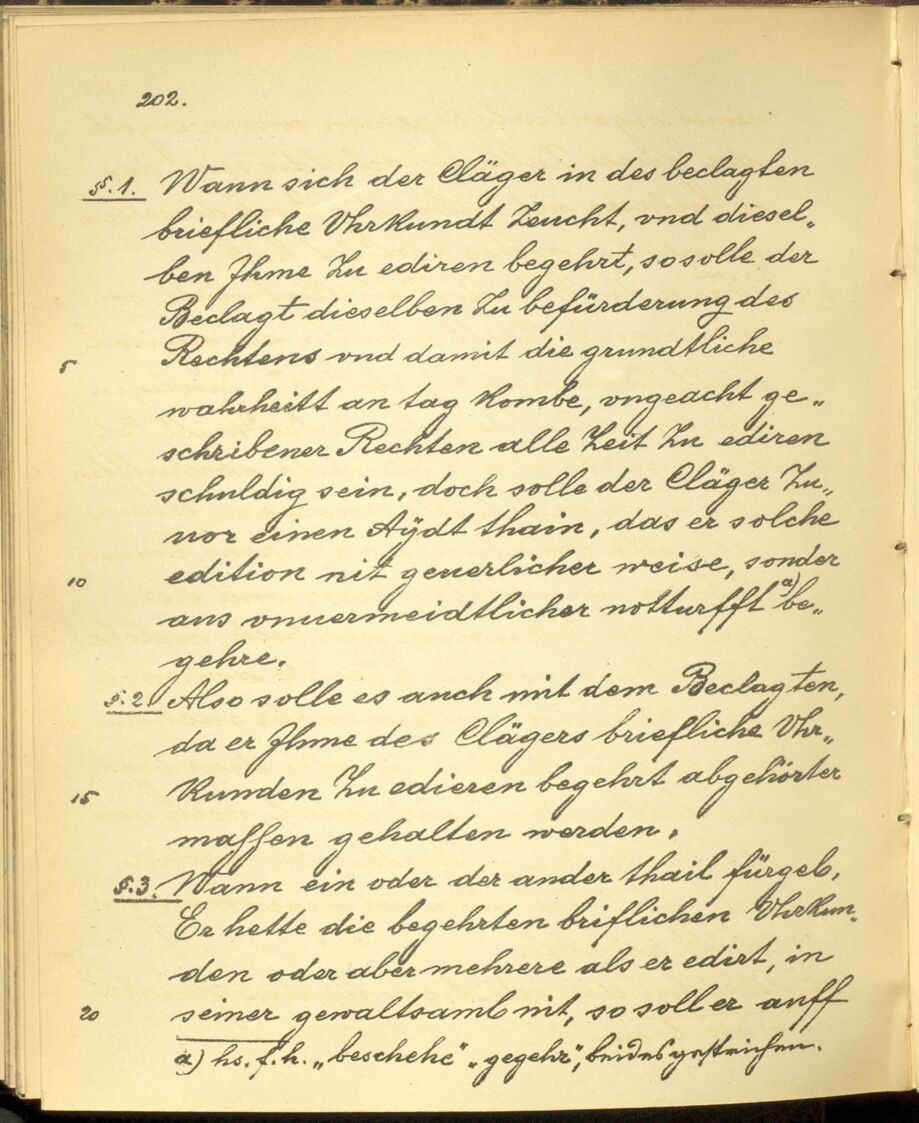 202.
§. 1. Wann sich der Cläger in des beclagten
briefliche Vhrkundt Zeucht, vnd diesel„
ben Ihme Zu ediren begehrt, so solle der
Beclagt dieselben Zu befürderung des
5 Rechtens vnd damit die grundtliche
wahrheitt an tag kombe, vngeacht ge„
schribener Rechten alle Zeit Zu ediren
schuldig sein, doch solle der Cläger Zu„
uor einen Aÿdt thain, das er solche
10 edition nit geuerlicher weise, sonder
aus vnuermeidtlicher notturfft a) be„
gehre.
§. 2. Also solle es auch mit dem Beclagten,
da er Ihme des Clägers briefliche Vhr„
15 kunden Zu edieren begehrt abgehörter
massen gehalten werden.
§. 3. Wann ein oder der ander thail fürgeb,
Er hette die begehrten briflichen Vhrkun„
den oder aber mehrere als er edirt, in
20 seiner gewaltsamb nit, so soll er auff
a) hs. f. h. „beschehe“ „gegehr“, beides gestrichen.